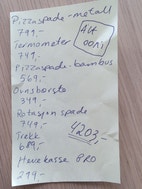 Pizzaspade - metall
799,-
Alt
Termometer
749,-
Pizzaspade - bambus
569,-
Ovnsbørste
349,-
Rotasjon spade
749,-
4203,-
Trekk
689,-
Hevekasse PRO
299,-